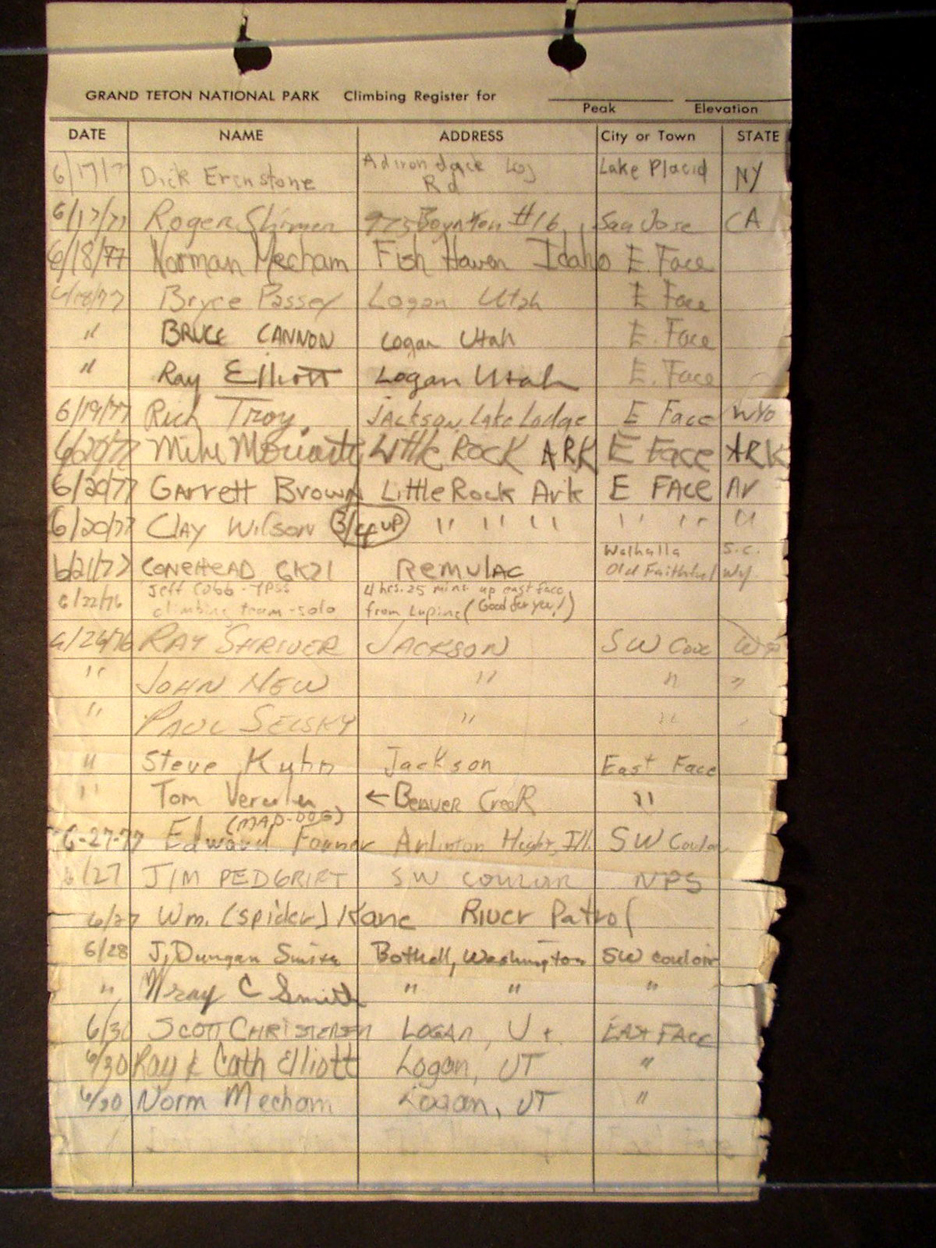 GRAND TETON NATIONAL PARK Climbing Register for
Peak Elevation
DATE NAME ADDRESS City or Town STATE
6/17/77 Dick Erenstone Adirondack Loj Rd Lake Placid NY
6/17/77 Roger 975 Boynton #16 San Jose CA
6/18/77 Norman Mecham Fish Haven Idaho E. Face
6/18/77 Bryce Passey Logan Utah E Face
" BRUCE CANNON Logan Utah E. Face
" Ray Elliott Logan Utah E. Face
6/19/77 Rich Troy Jackson Lake Lodge E Face Wyo
6/20/77 Mike Moriarty Little Rock ARK E Face ARK
6/20/77 Garrett Brown Little Rock Ark E FACE Ar
6/20/77 Clay Wilson 3/4 up " " " " " " " "
6/21/77 CONEHEAD GK21 Remulac Walhalla S.C.
Old Faithful Wy
6/22/76 Jeff Cobb - climbing team - solo 4 hrs. 25 mins up east face from Lupine (Good for you!)
6/26/76 RAY SHRIVER JACKSON SW Couloir
" JOHN NEW " " "
" PAUL SELSKY " "
" Steve Kuhn Jackson East Face
" Tom ← Beaver Creek "
(MAD-DOG)
6-27-77 Edward Farmer Arlinton Heights, Ill. SW Couloir
6/27 JIM PEDGRIFT SW COULOIR NPS
6/27 Wm. (Spider) Kane River Patrol
6/28 J. Dungan Smith Bothell, Washington SW couloir
" Wray C Smith " " "
6/30 SCOTT CHRISTENSEN LOGAN, Ut EAST FACE
6/30 Ray & Cath Elliott Logan, UT "
6/30 Norm Mecham Logan, UT "